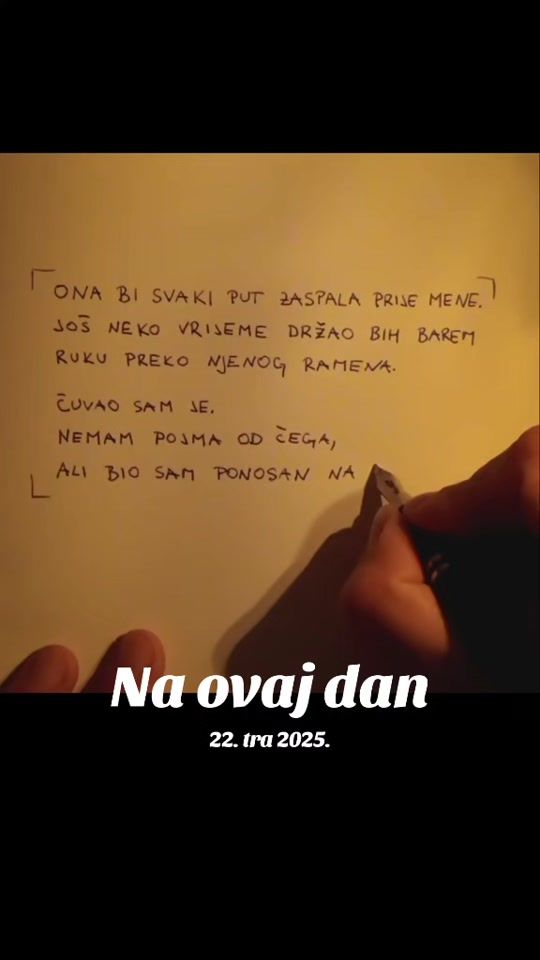 ONA BI SVAKI PUT ZASPALA PRIJE MENE.
JOŠ NEKO VRIJEME DRŽAO BIH BAREM
RUKU PREKO NJENOG RAMENA.
ČUVAO SAM JE.
NEMAM POJMA OD ČEGA,
ALI BIO SAM PONOSAN NA
Na ovaj dan
22. tra 2025.